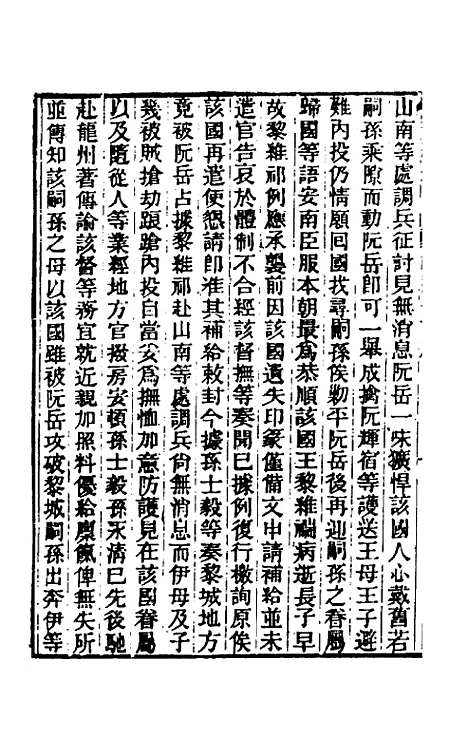 山南等處調兵征討見無消息阮岳一味獷悍該國人心戴舊若
嗣孫乘隙而動阮岳即可一舉成擒阮輝宿等護送王母王子避
難內投仍情願回國找尋嗣孫俟勦平阮岳後再迎嗣孫之眷屬
歸國等語安南臣服本朝最為恭順該國王黎維褍病逝長子早
故黎維祁例應承襲前因該國遺失印篆僅備文申請補給並未
遣官告哀於體制不合經該督撫等奏聞已據例復行檄詢原俟
該國再遣使懇請即准其補給敕封今據孫士毅等奏黎城地方
竟被阮岳占據黎維祁赴山南等處調兵尙無消息而伊母及子
幾被賊搶劫踉蹌內投自當妥為撫恤加意防護見在該國眷屬
以及隨從人等業經地方官撥房安頓孫士毅孫永清已先後馳
赴龍州著傳諭該督等務宜就近親加照料優給廩餼俾無失所
並傳知該嗣孫之母以該國雖被阮岳攻破黎城嗣孫出奔伊等